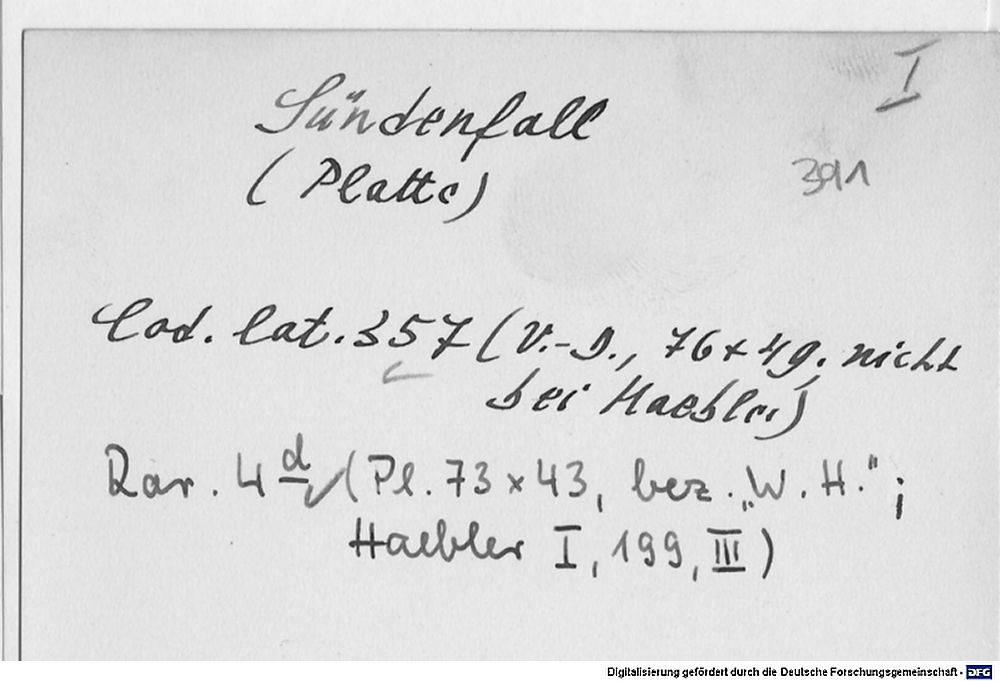 I
Sündenfall
(Platte)
391
Cod. lat. 357 (V.-D., 76 x 49. nicht
bei Haebler)
Rar. 4 d (Pl. 73 x 43, bez. „W. H.";
Haebler I, 199, III)
Digitalisierung gefördert durch die Deutsche Forschungsgemeinschaft - DFG